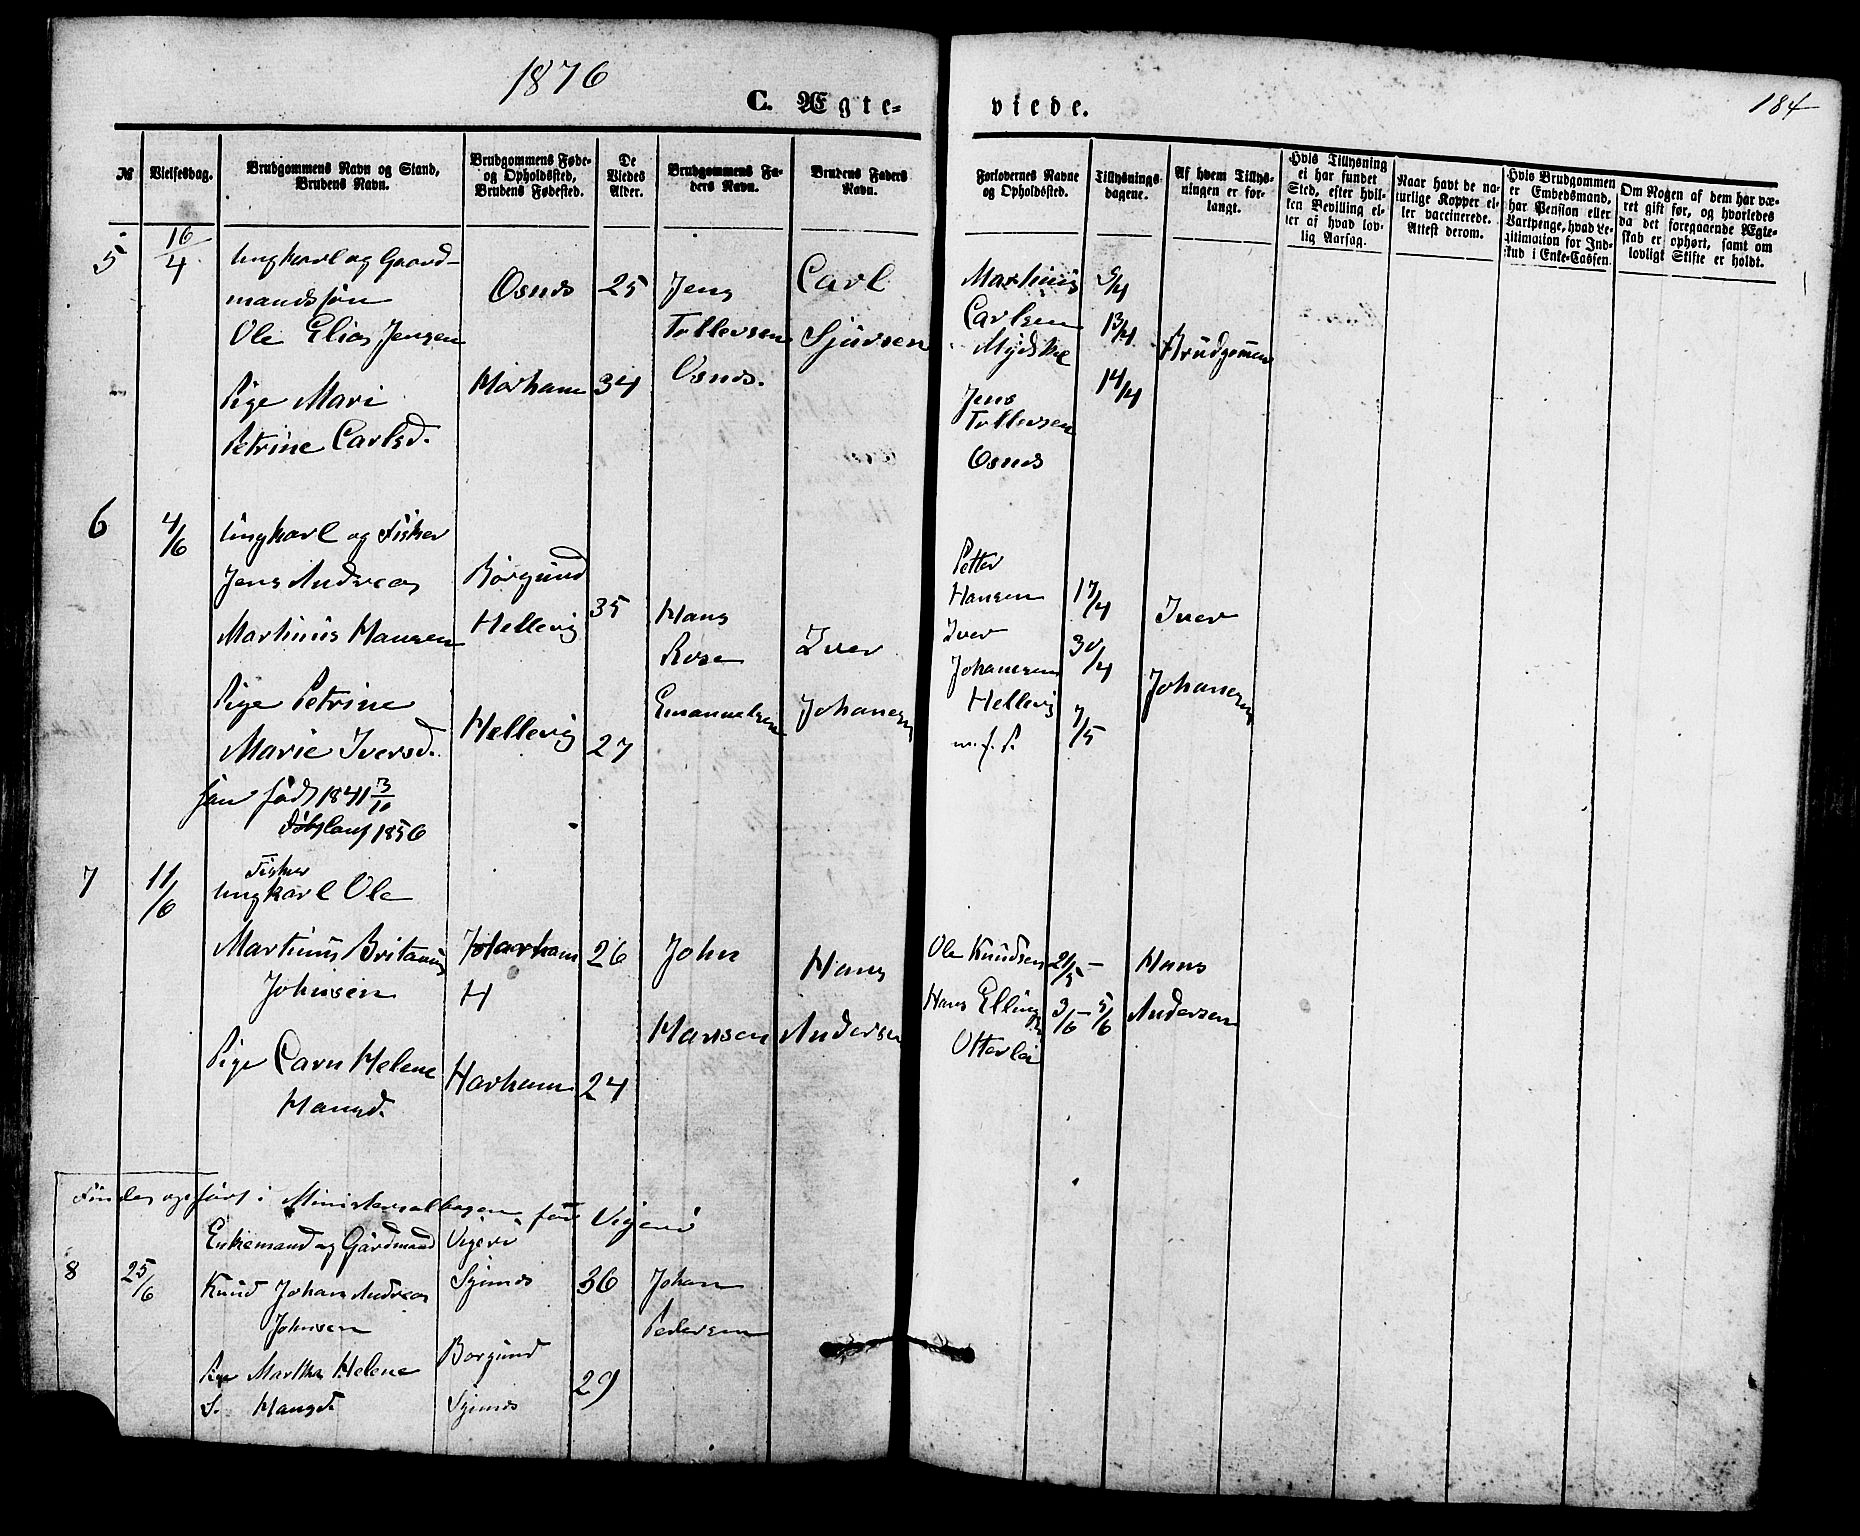 1876
184
C. Ægte-
viede.
№
Vielsesdag.
Brudgommens Navn og Stand,
Brudens Navn.
Brudgommens Føde-
og Opholdssted,
Brudens Fødested.
De
Viedes
Alder.
Brudgommens Fa-
ders Navn.
Brudens Faders
Navn.
Forlovernes Navne
og Opholdssted.
Tillysnings-
dagene.
Af hvem Tillys-
ningen er for-
langt.
Hvis Tillysning
ei har fundet
Sted, efter hvil-
ken Bevilling el-
ler af hvad lov-
lig Aarsag.
Naar havt de na-
turlige Kopper el-
ler vaccinerede.
Attest derom.
Hvis Brudgommen
er Embedsmand,
har Pension eller
Vartpenge, hvad Le-
gitimation for Ind-
skud i Enke-Cassen.
Om Nogen af dem har væ-
ret gift før, og hvorledes
va det foregaaende Ægte-
skab er ophørt, samt om
lovligt Skifte er holdt.
5
16/4
Ungkarl og Gaard-
mandssøn
Ole Elias Jensen
Pige Mari
Petrine Carlsd.
Osnes
Harham
25
34
Jens
Tollevsen
Osnes.
Carl
Sjursen
Marthinus
Carlsen
Jens
Tollevsen
Osnes
9/4
13/4
14/4
Brudgommen
6
4/6
Ungkarl og Fisker
Jens Andreas
Martinus Hansen
Pige Petrine
Marie Iversd.
født 1841 3/10
1856
Borgund
Hellevig
Hellevig
35
27
Hans
Rose
Emanuelsen
Iver
Johansen
Petter
Hansen
Iver
Johansen
Hellevig
17/4
30/4
7/5
Iver
Johansen
7
11/6
Fisker
Ungkarl Ole
Martinus Britanus
Johnsen
Pige Caren Helene
Hansd.
Harham
H
Harham
26
24
John
Hansen
Hans
Andersen
Ole Knudsen
Hans Elling
Otterlei
21/5 -
3/6 - 5/6
Hans
Andersen
Findes opført i Ministerialbogen for Vigerø
8
25/6
Enkemand og Gårdmand
Knud Johan Andreas
Johnsen
Martha Helene
Hansd.
Vigerø
Borgund
36
29
Johan
Pedersen